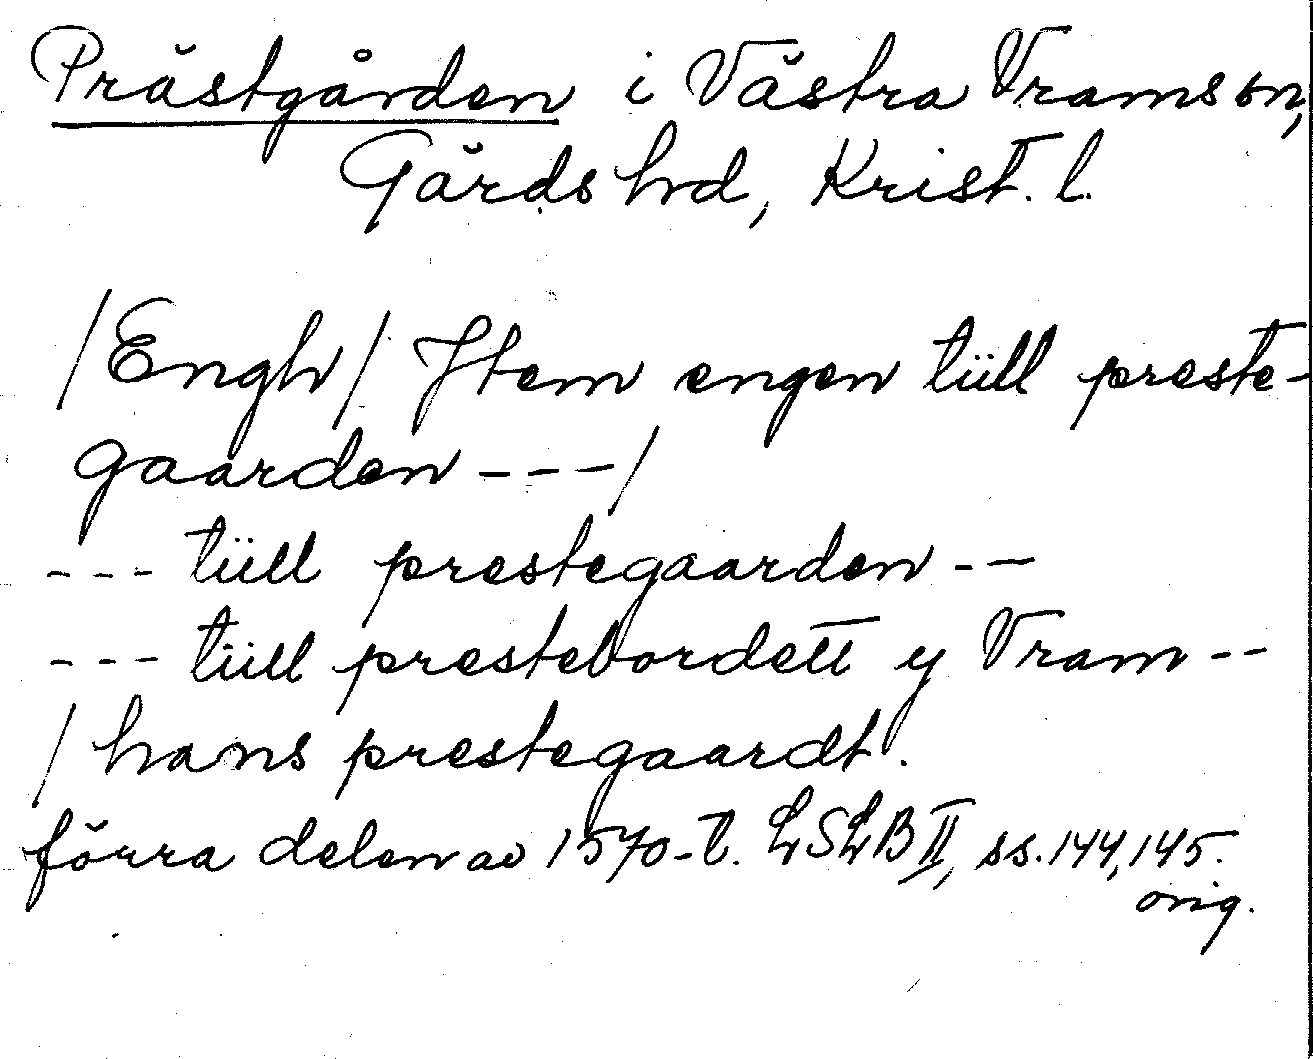 Prästgården i Västra Vrams sn,
Gärds hrd, Krist. l.
/Engh/ Jtem engen tüll preste-
gaarden ---/
--- tüll prestegaarden --
--- tüll prestebordett y Vram --
/hans prestegaardt.
förra delen av 1570-t. LSLB II, ss. 144, 145.
orig.